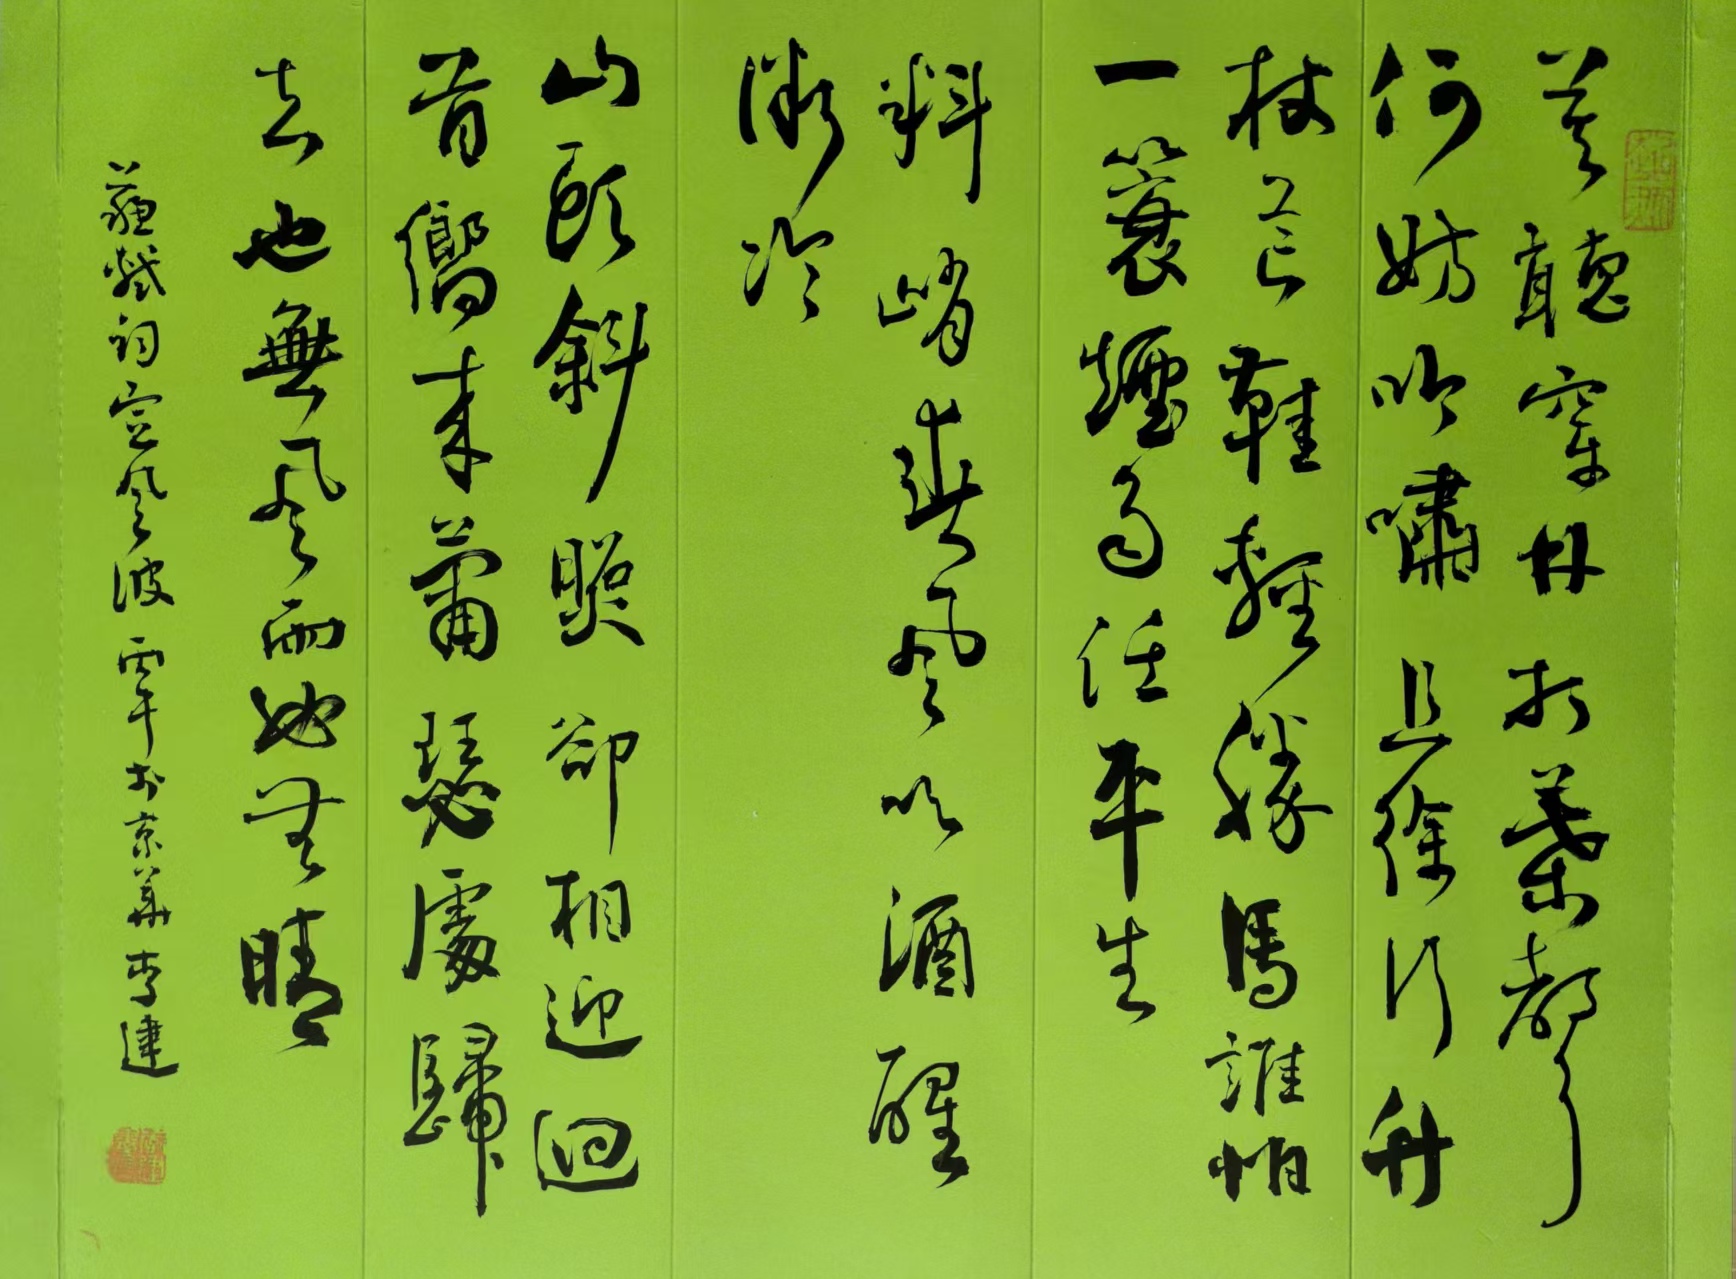 莫聽穿林打葉聲
何妨吟嘯且徐行竹
杖芒鞋輕勝馬誰怕
一蓑煙雨任平生
料峭春風吹酒醒
微冷
山頭斜照卻相迎迴
首嚮来蕭瑟處歸
去也無風雨也无晴
蘇軾詞定風波丙午於京華李建